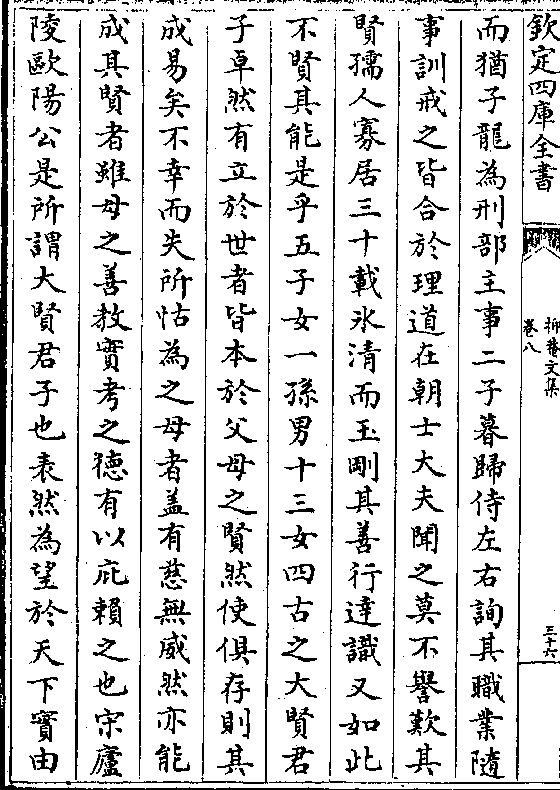 欽定四庫全書
抑菴文集
卷八
三十六
而猶子龍為刑部主事二子暮歸侍左右詢其職業隨
事訓戒之皆合於理道在朝士大夫聞之莫不譽歎其
賢孺人寡居三十載氷清而玉剛其善行達識又如此
不賢其能是乎五子女一孫男十三女四古之大賢君
子卓然有立於世者皆本於父母之賢然使俱存則其
成易矣不幸而失所怙為之母者盖有慈無威然亦能
成其賢者雖母之善教實考之徳有以庇賴之也宋廬
陵歐陽公是所謂大賢君子也表然為望於天下實由